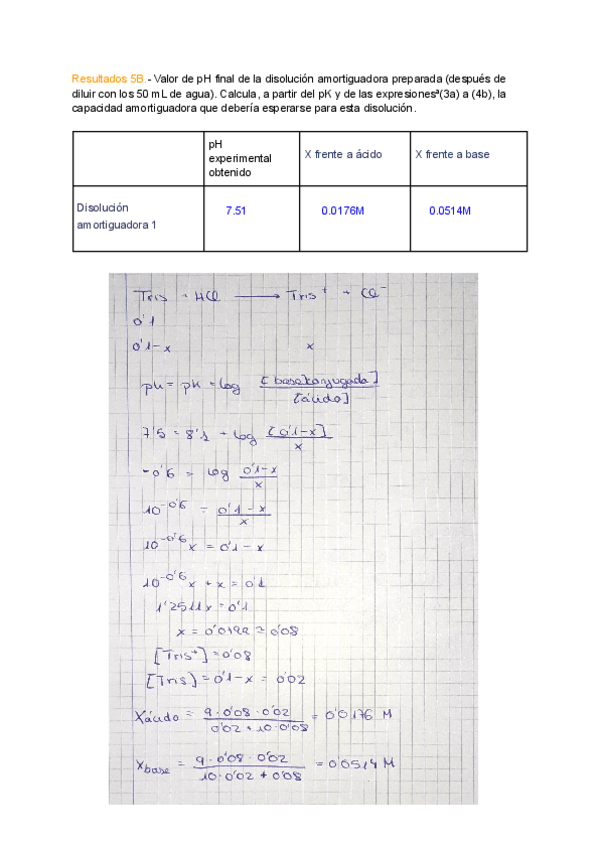 Resultados 5B.- Valor de pH final de la disolución amortiguadora preparada (después de
diluir con los 50 mL de agua). Calcula, a partir del pK y de las expresionesª(3a) a (4b), la
capacidad amortiguadora que debería esperarse para esta disolución.
pH
experimental
obtenido
X frente a ácido
X frente a base
Disolución
amortiguadora 1
7.51
0.0176M
0.0514M
Tris + HCl ⟶ Tris⁺ + Cl⁻
0'1
0'1-x x
pH = pK = log [base conjugada]/[ácido]
7'5 = 8'1 + log [0'1-x]/x
-0'6 = log 0'1-x/x
10^-0'6 = 0'1-x/x
10^-0'6 x = 0'1-x
10^-0'6 x + x = 0'1
1'2511x = 0'1
x = 0'0799 ≃ 0'08
[Tris⁺] = 0'08
[Tris] = 0'1-x = 0'02
Xácido = 9·0'08·0'02/0'02+10·0'08 = 0'0176 M
Xbase = 9·0'08·0'02/10·0'02+0'08 = 0'0514 M